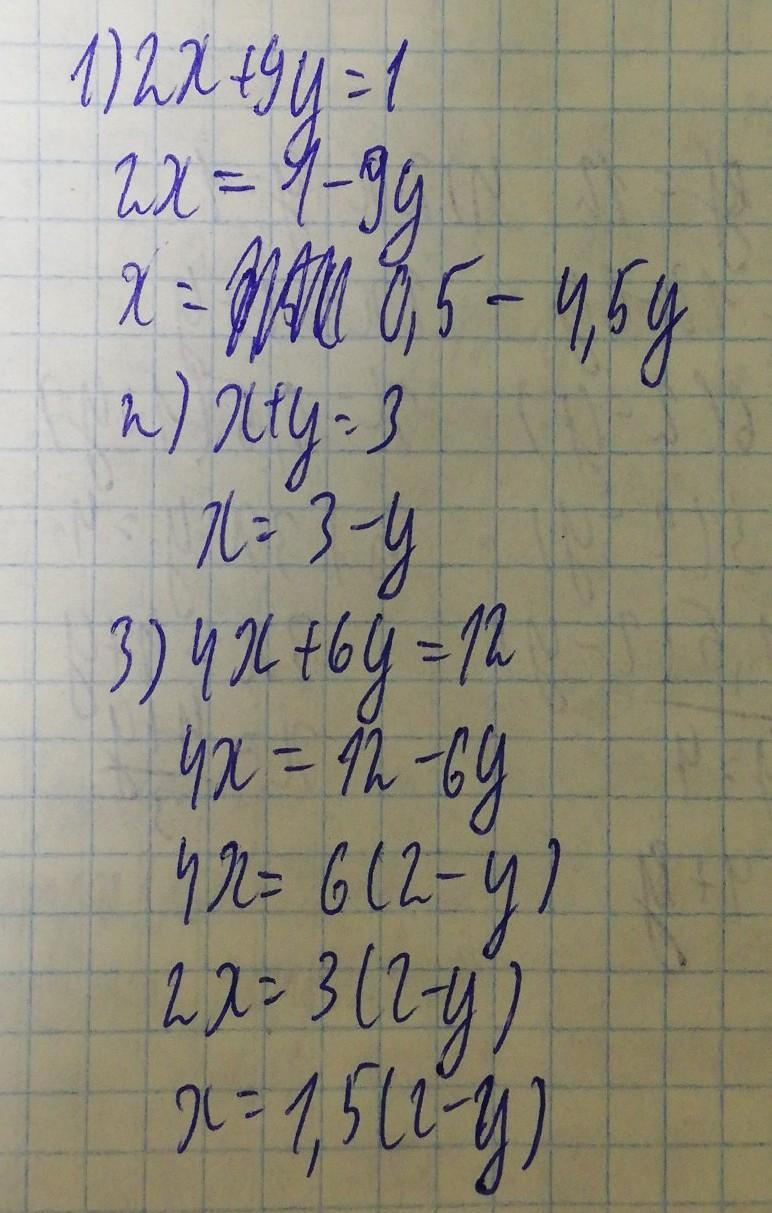 1) 2x+9y=1
2x = 1-9y
x = 0,5 - 4,5y
2) x+y=3
x = 3-y
3) 4x+6y=12
4x = 12-6y
4x = 6(2-y)
2x = 3(2-y)
x = 1,5(2-y)